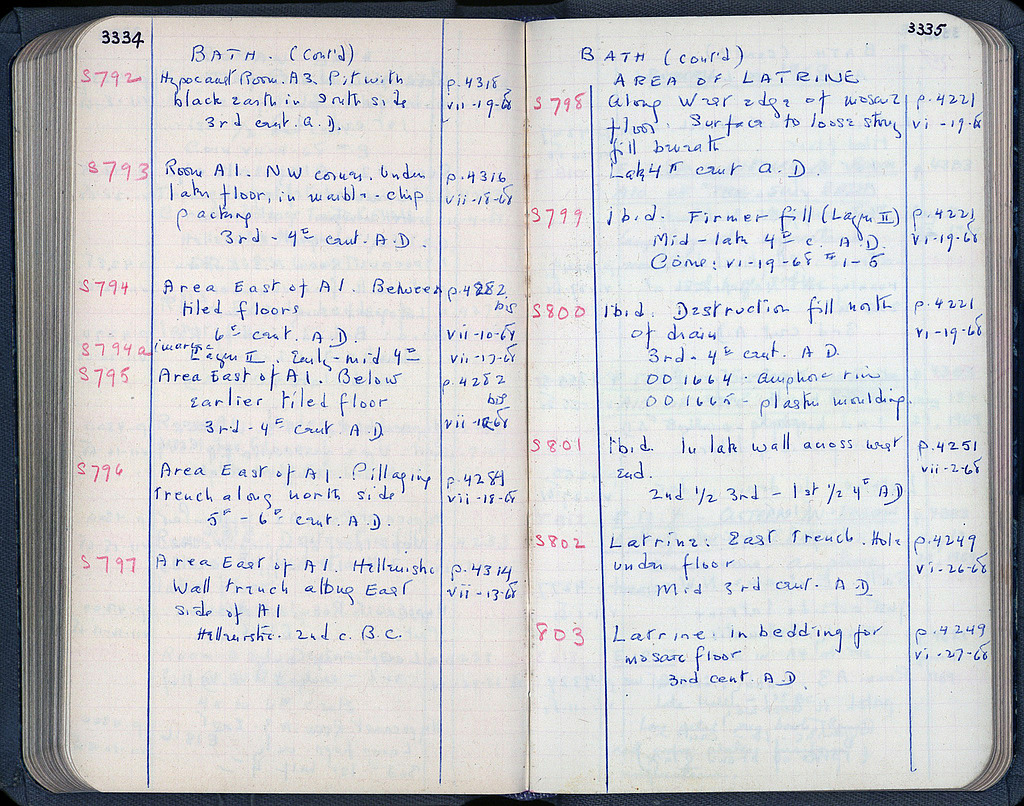 3334
BATH. (cont'd)
S792 Hypocaust Room. A3. Pit with p. 4318
black earth in south side vii-19-68
3rd cent. A.D.
S793 Room A1. NW corner. Under p. 4316
later floor, in marble-chip vii-18-68
packing
3rd - 4th cent. A.D.
S794 Area East of A1. Between p. 4282
tiled floors bis
6th cent. A.D. vii-10-68
S794a Layer II. Early-mid 4th vii-17-68
S795 Area East of A1. Below p. 4282
earlier tiled floor bis
3rd - 4th cent. A.D. vii-68
S796 Area East of A1. Pillaging p. 4284
trench along north side vii-18-68
5th - 6th cent. A.D.
S797 Area East of A1. Hellenistic p. 4314
Wall trench along East vii-13-68
side of A1
Hellenistic. 2nd c. B.C.
3335
BATH (cont'd)
AREA OF LATRINE
S798 Along West edge of mosaic p. 4221
floor. Surface to loose stony vi-19-68
fill beneath
Late 4th cent A.D.
S799 ibid. Firmer fill (Layer II) p. 4221
Mid-late 4th c. A.D. vi-19-68
Coins: vi-19-68 # 1-5
S800 Ibid. Destruction fill north p. 4221
of drain vi-19-68
3rd - 4th cent. A.D.
OO 1664 - amphora rim
OO 1665 - plastic moulding.
S801 Ibid. In late wall across west p. 4251
end. vii-2-68
2nd 1/2 3rd - 1st 1/2 4th A.D
S802 Latrine. East Trench. Hole p. 4249
under floor vi-26-68
Mid 3rd cent. A.D.
803 Latrine. in bedding for p. 4249
mosaic floor vi-27-68
3rd cent. A.D.